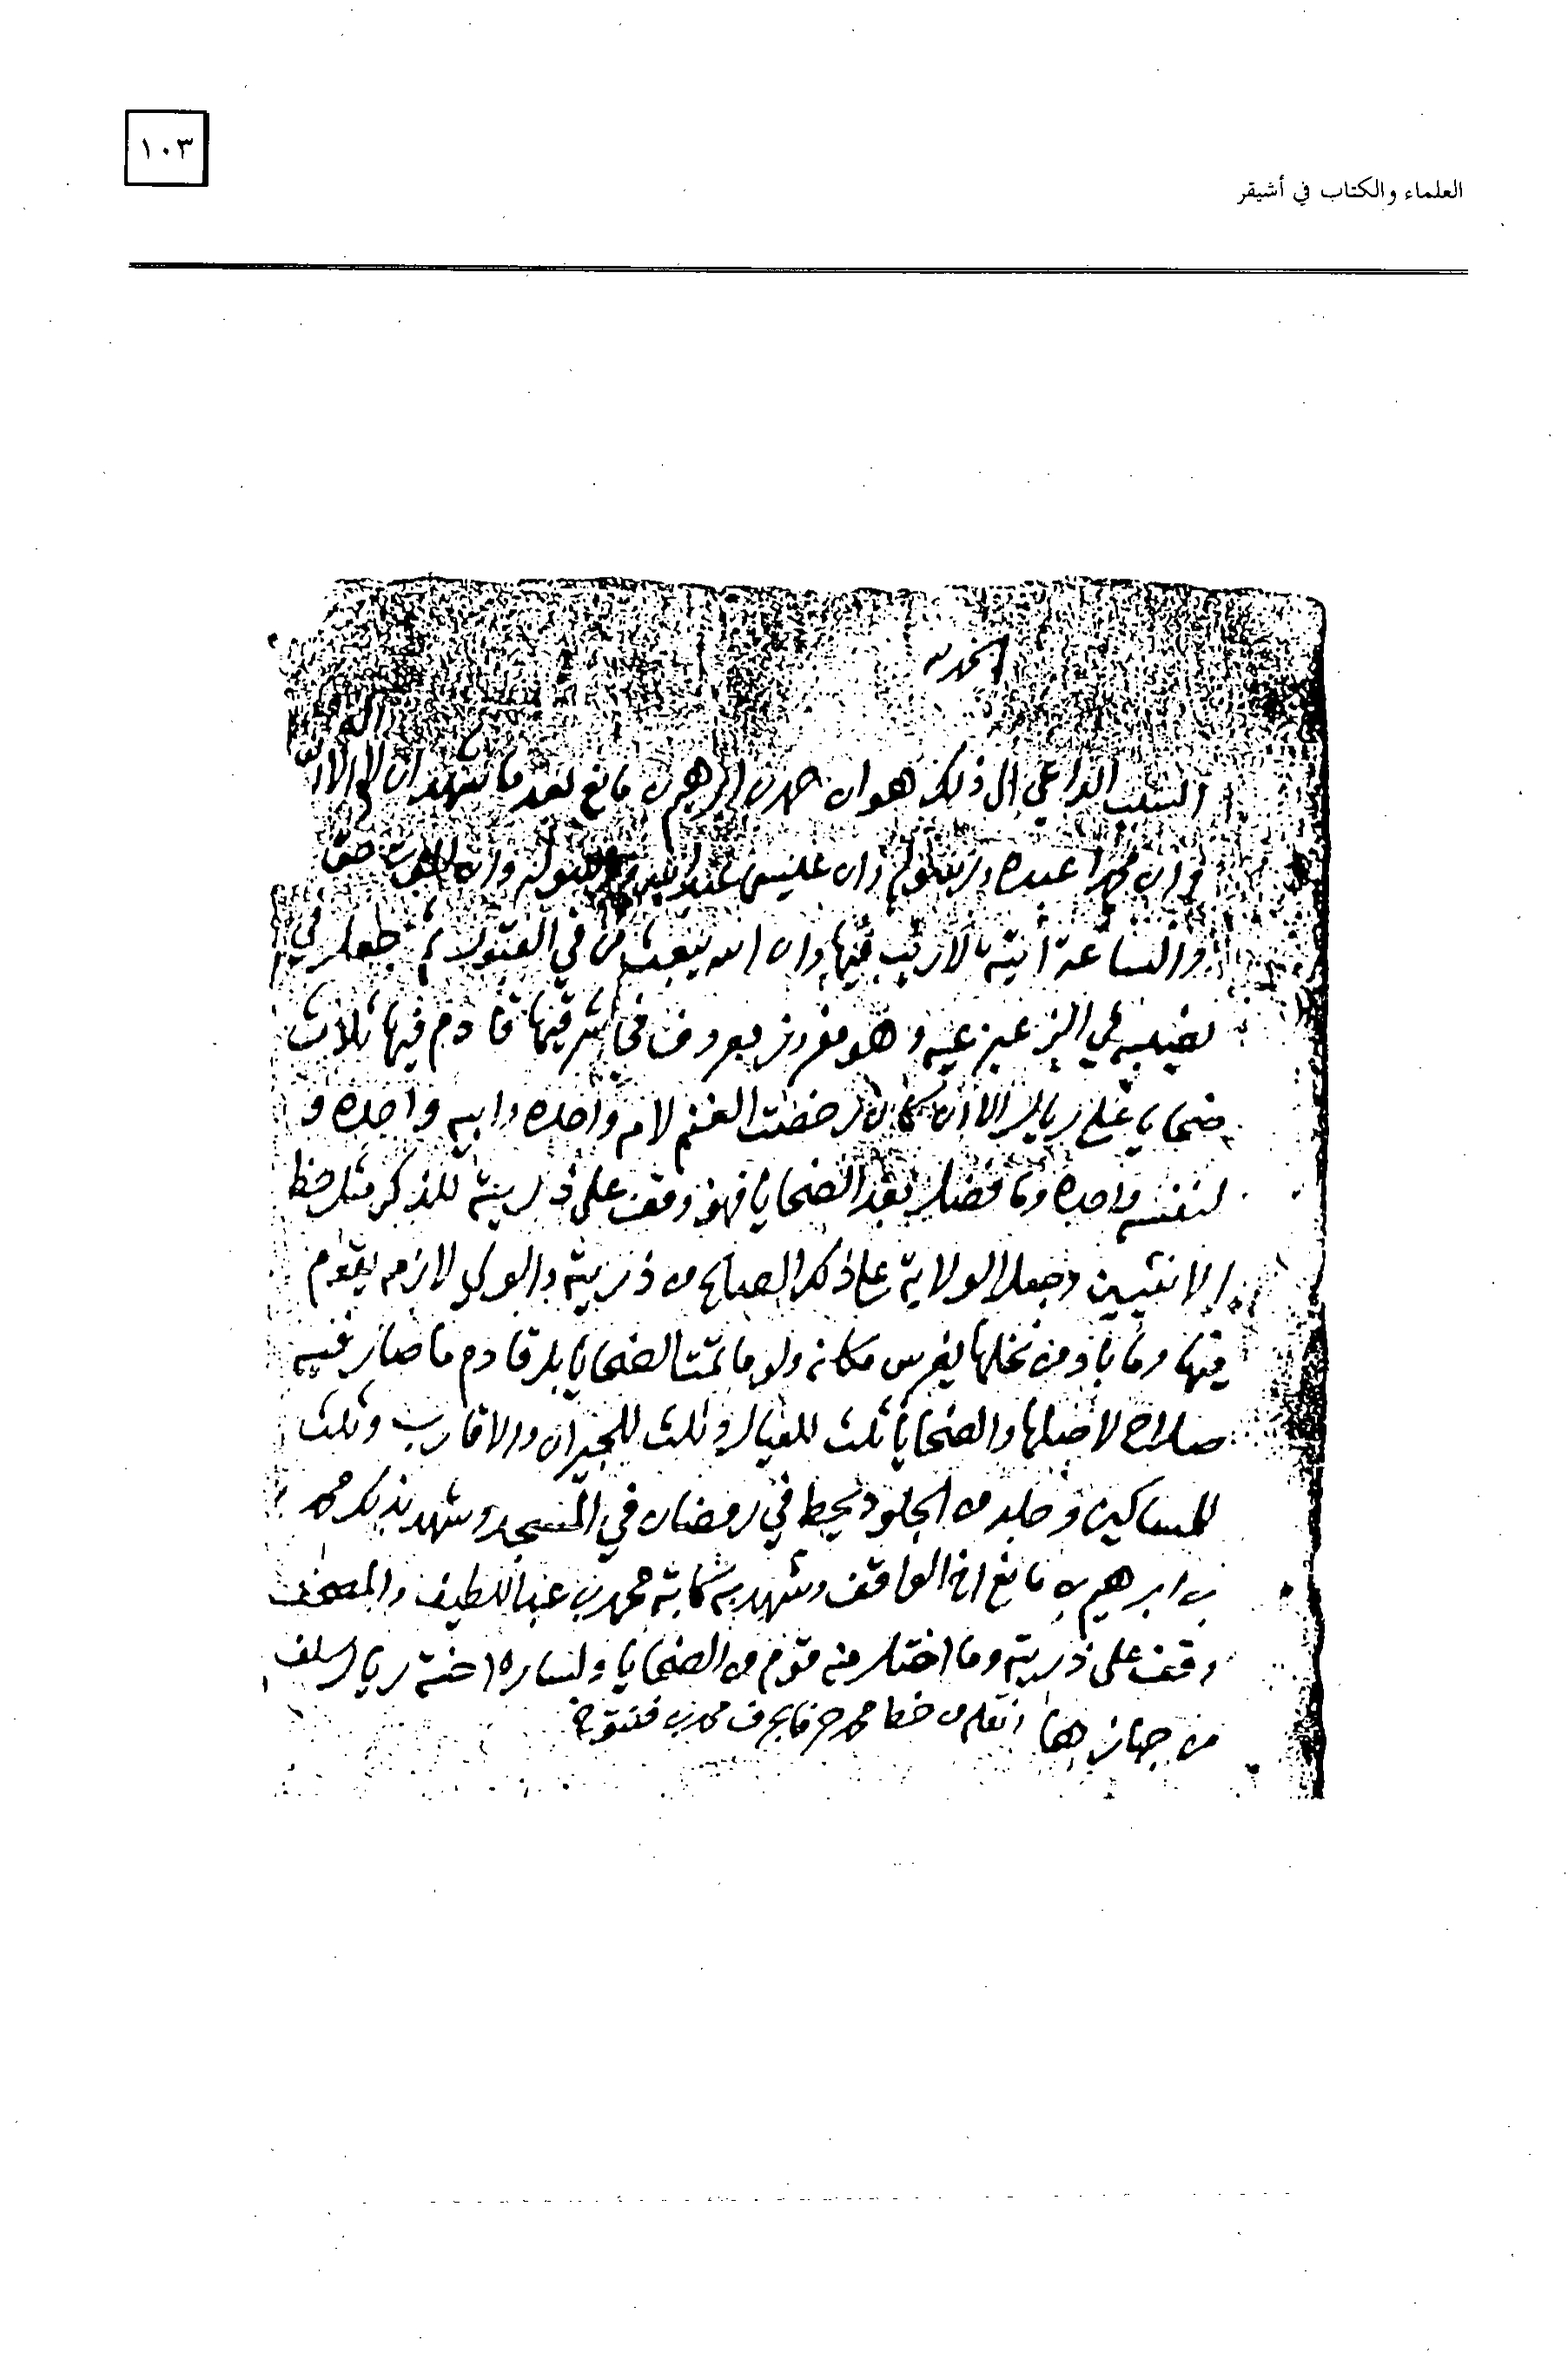 ١٠٣
العلماء والكتاب في أشيقر
الحمد لله
السبب الداعي إلى ذلك هو ان حمد بن ابرهيم بن مانع بعد ما شهد ان لا اله الا الله
وان محمدا عبده ورسوله وان عيسى عبد الله ورسوله وان الموت حق
والساعة آتية لا ريب فيها وان الله يبعث من في القبور
نصيبه في البئر وهو مفروز معروف في شرقيها قادم فيها ثلاث
ضحايا على ريال الا ان كان رخصت الغنم لامه واحده وابيه واحده و
لنفسه واحده وما فضل بعد الضحايا فهو وقف على ذريته للذكر مثل حظ
الانثيين وجعل الولاية على ذلك الصالح من ذريته والوكيل لازم يقوم
فيها وما باد من نخلها يغرس مكانه ولو ما تمت الضحايا بل قادم ما صار فيه
صلاح لاصلها والضحايا ثلث للعيال وثلث للجيران والاقارب وثلث
للمساكين وجلد من الجلود يحط في رمضان في المسجد وشهد بذلك محمد
بن ابرهيم بن مانع اخ الواقف وشهد به كاتبه محمد بن عبد اللطيف والمصحف
وقف على ذريته وما اختل منه قوم من الضحايا ولساره اخته ريال سلف
من جهازها نقله من خط محمد حرفا بحرف محمد بن فنتوخ